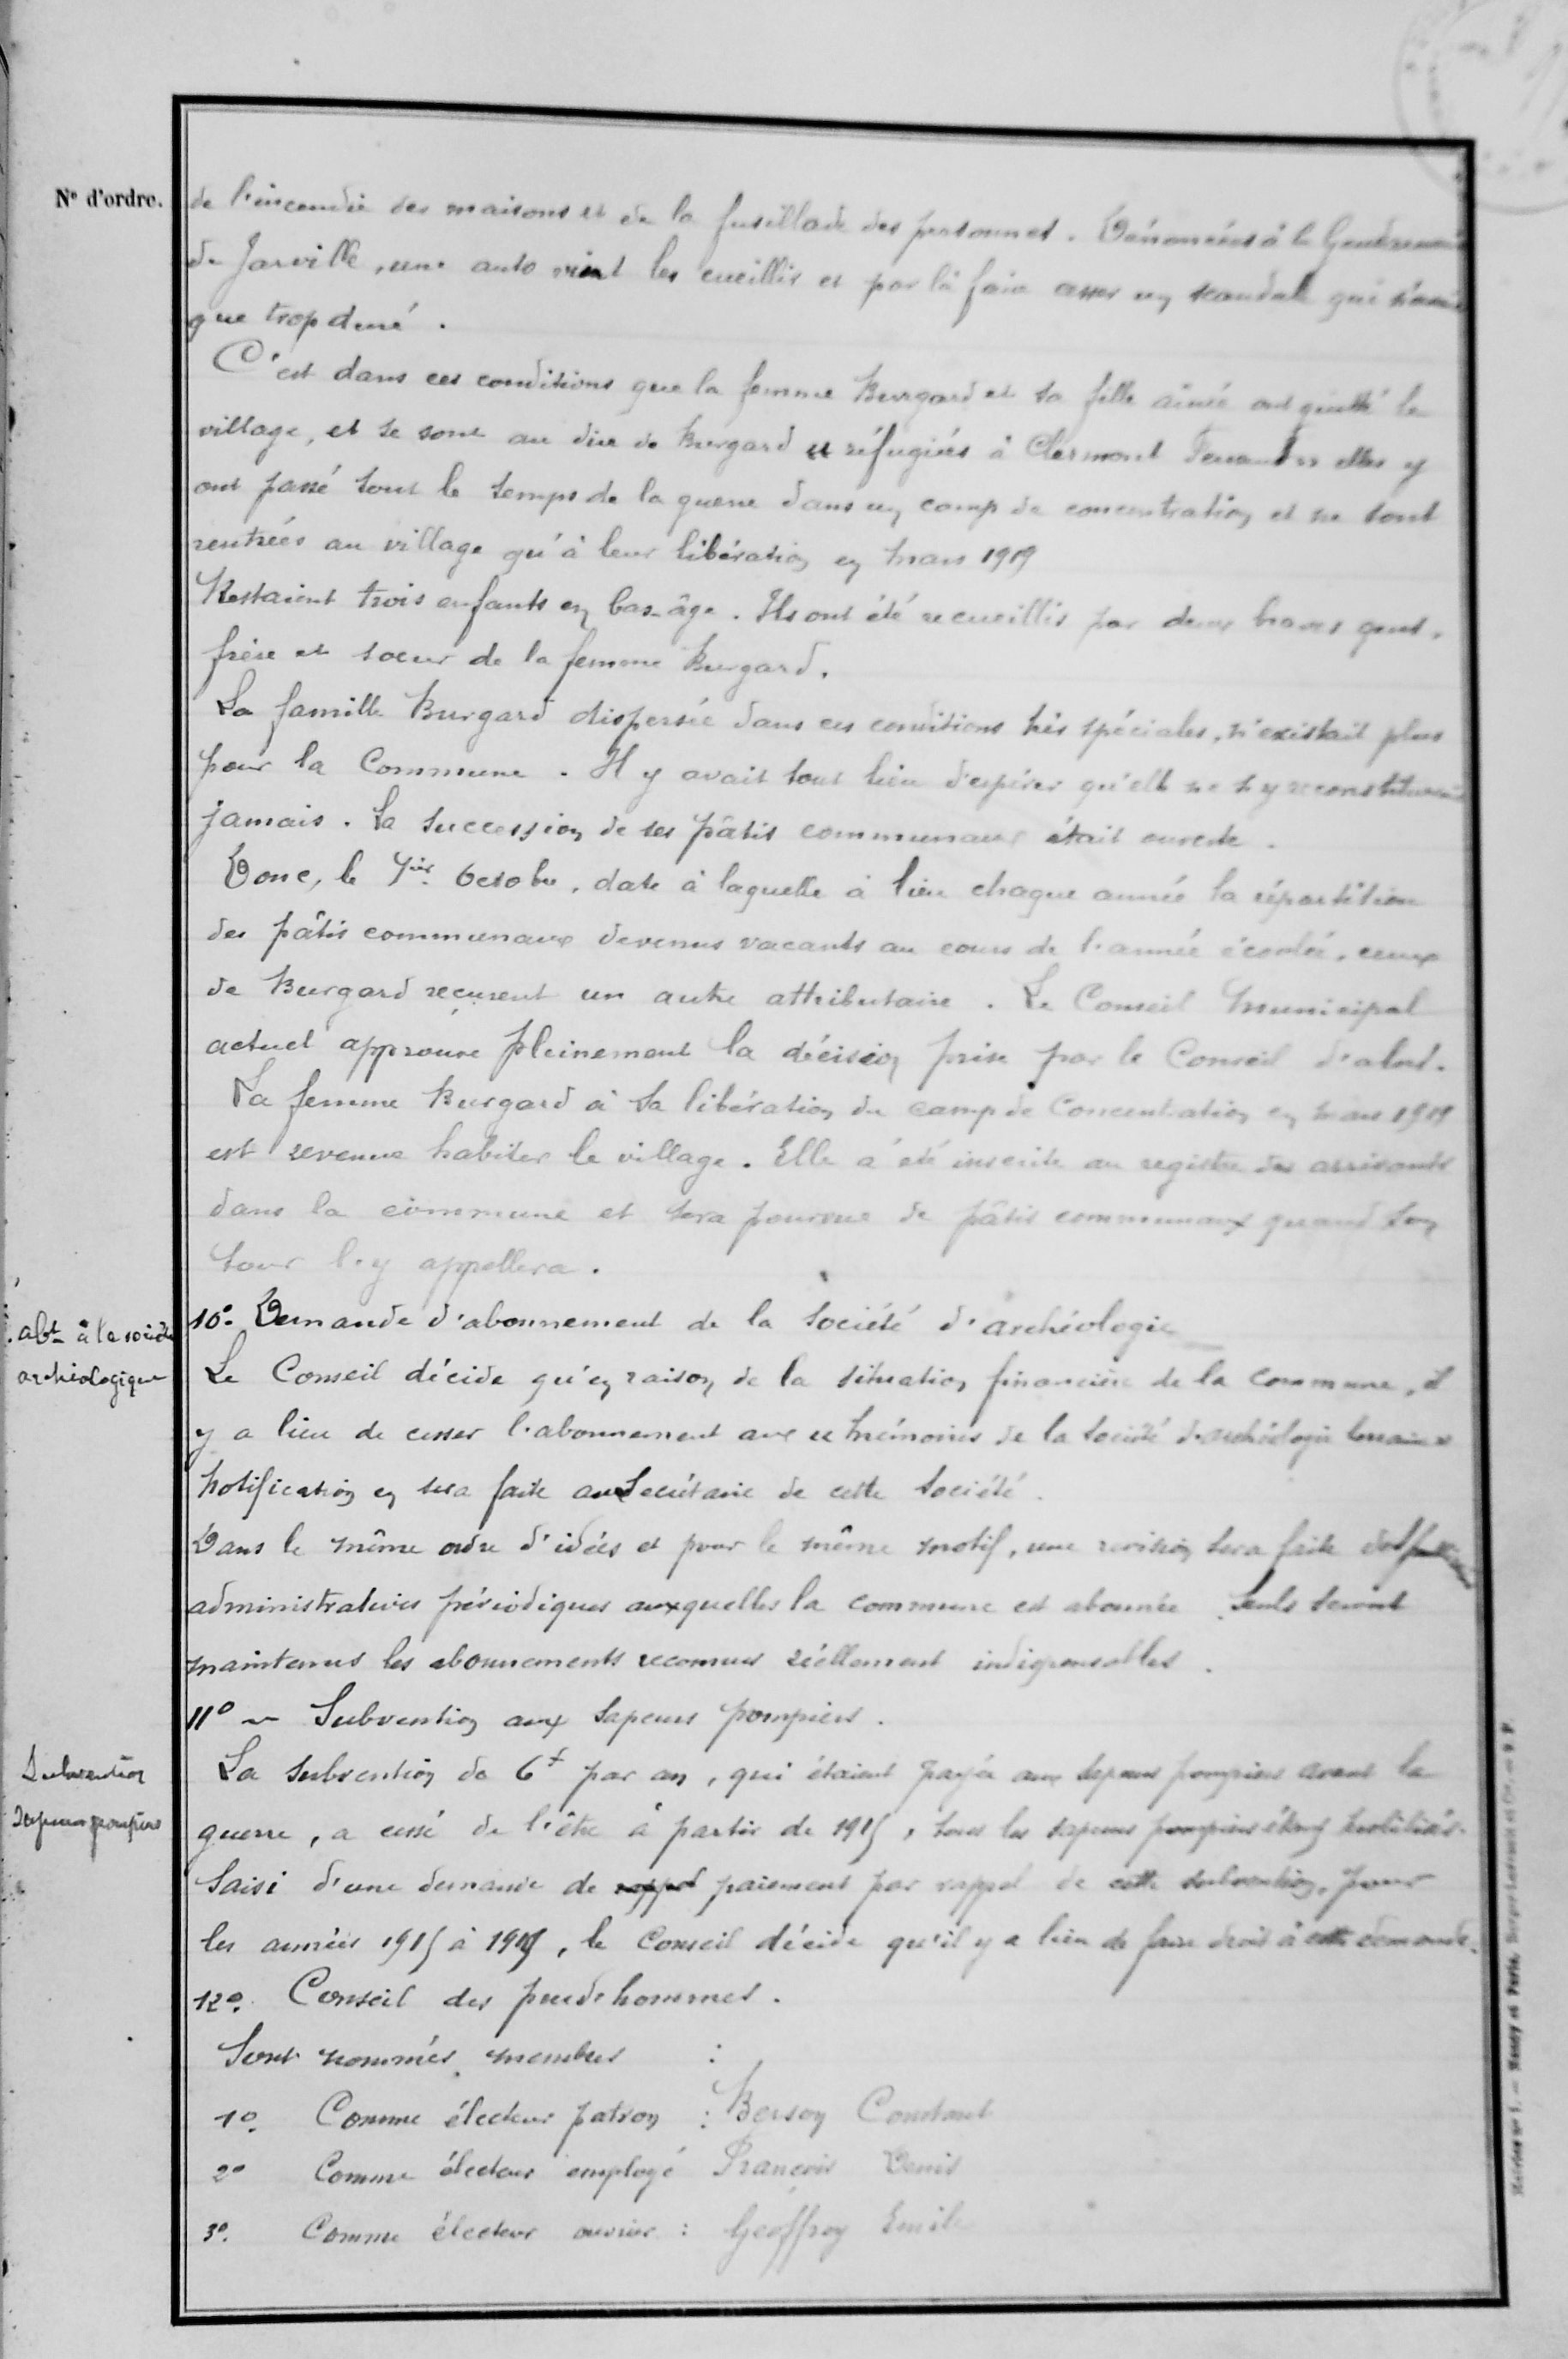 N° d'ordre.
de l'incendie des maisons et de la fusillade des personnes. Dénoncées à la Gendarmerie
de Jarville, une auto vient les cueillir et par là faire cesser un scandale qui n'avait
que trop duré.
C'est dans ces conditions que la femme Burgard et sa fille aînée ont quitté le
village, et se sont au dire de Burgard réfugiées à Clermont Ferrand elles y
ont passé tout le temps de la guerre dans un camp de concentration et ne sont
rentrées au village qu'à leur libération en Mars 1919
Restaient trois enfants en bas-âge. Ils ont été recueillis par deux braves gens,
frère et soeur de la femme Burgard.
La famille Burgard dispersée dans ces conditions très spéciales, n'existait plus
pour la Commune. Il y avait tout lieu d'espérer qu'elle ne s'y reconstituerait
jamais. La succession de ses pâtis communaux était ouverte.
Donc, le 1er Octobre, date à laquelle à lieu chaque année la répartition
des pâtis communaux devenus vacants au cours de l'année écoulée, ceux
de Burgard reçurent un autre attributaire. Le Conseil Municipal
actuel approuve pleinement la décision prise par le Conseil d'alors.
La femme Burgard à sa libération du camp de Concentration en Mars 1919
est revenue habiter le village. Elle a été inscrite au registre des arrivants
dans la commune et sera pourvue de pâtis communaux quand son
tour l'y appellera.
abt à la société
archéologique
10° Demande d'abonnement de la Société d'archéologie
Le Conseil décide qu'en raison de la situation financière de la commune, il
y a lieu de cesser l'abonnement aux Mémoires de la Société d'archéologie lorraine
Notification en sera faite au Secrétaire de cette Société.
Dans le même ordre d'idées et pour le même motif, une revision sera faite des
administratives périodiques auxquelles la commune est abonnée. Seuls seront
maintenus les abonnements reconnus réellement indispensables.
11° - Subvention aux Sapeurs pompiers.
Subvention
Sapeurs pompiers
La subvention de 6f par an, qui étaient payée aux sapeurs pompiers avant la
guerre, a cessé de l'être à partir de 1915, tous les sapeurs pompiers étant mobilisés.
Saisi d'une demande de rappel paiement par rappel de cette subvention, pour
les années 1915 à 1919, le Conseil décide qu'il y a lieu de faire droit à cette demande.
12° Conseil des prud'hommes.
Sont nommés membres :
1° Comme électeur patron : Berson Constant
2° Comme électeur employé François Denis
3° Comme électeur ouvrier : Geoffroy Emile